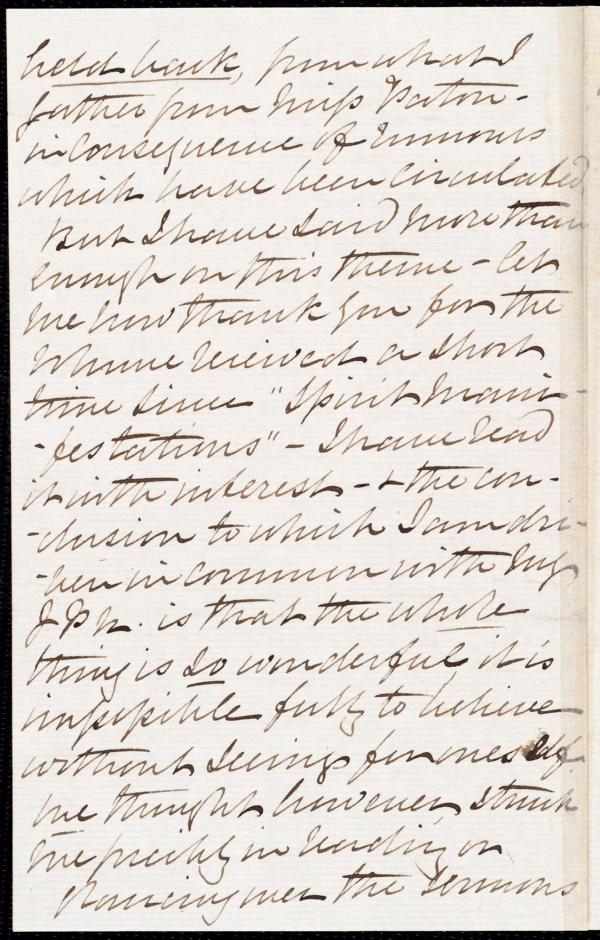 held back, from what I
gather from Miss Paton -
in consequence of rumours
which have been circulated.
But I have said more than
enough on this theme - let
me now thank you for the
volume received a short
time since "Spirit Mani-
-festations" - I have read
it with interest - & the con-
-clusion to which I am dri-
-ven in common with My
J P N. is that the whole
thing is so wonderful, it is
impossible fully to believe
without seeing for oneself.
One thought however struck
me forcibly in reading or
glancing over the sermons